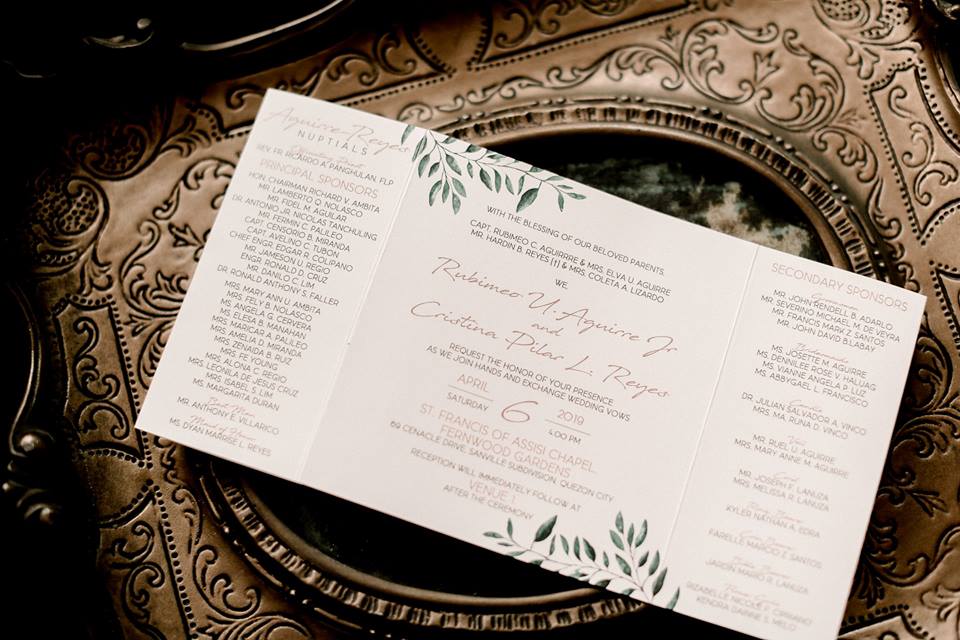 Aguirre-Reyes
NUPTIALS
Officiating Priest
REV. FR. RICARDO A. PANGHULAN, FLP
PRINCIPAL SPONSORS
HON. CHAIRMAN RICHARD V. AMBITA
MR. LAMBERTO Q. NOLASCO
MR. FIDEL M. AGUILAR
DR. ANTONIO JR. NICOLAS TANCHULING
MR. FERMIN C. PALILEO
CAPT. CENSORIO B. MIRANDA
CAPT. AVELINO C. TUBON
CHIEF ENGR. EDGAR O. COLIPANO
MR. JAMESON U. REGIO
ENGR. RONALD D. CRUZ
MR. DANILO C. LIM
DR. RONALD ANTHONY S. FALLER
MRS. MARY ANN U. AMBITA
MRS. FELY B. NOLASCO
MS. ANGELA G. CERVERA
MS. ELESA B. MANAHAN
MRS. MARICAR A. PALILEO
MRS. AMELIA D. MIRANDA
MRS. ZENAIDA B. RUIZ
MRS. FE YOUNG
MRS. ALONA C. REGIO
MRS. LEONILA DE JESUS CRUZ
MRS. ISABEL S. LIM
MS. MARGARITA DURAN
Best Man
MR. ANTHONY E. VILLARICO
Maid of Honor
MS. DYAN MARRISE L. REYES
WITH THE BLESSING OF OUR BELOVED PARENTS,
CAPT. RUBIMEO C. AGUIRRRE & MRS. ELVA U. AGUIRRE
MR. HARDIN B. REYES (†) & MRS. COLETA A. LIZARDO
WE,
Rubimeo U. Aguirre Jr
and
Cristina Pilar L. Reyes
REQUEST THE HONOR OF YOUR PRESENCE
AS WE JOIN HANDS AND EXCHANGE WEDDING VOWS
APRIL
SATURDAY 6 2019
4:00 PM
ST. FRANCIS OF ASSISI CHAPEL
FERNWOOD GARDENS
69 CENACLE DRIVE, SANVILLE SUBDIVISION, QUEZON CITY
RECEPTION WILL IMMEDIATELY FOLLOW AT
VENUE 1
AFTER THE CEREMONY
SECONDARY SPONSORS
Groomsmen
MR. JOHN RENDELL B. ADARLO
MR. SEVERINO MICHAEL M. DE VEYRA
MR. FRANCIS MARK Z. SANTOS
MR. JOHN DAVID B.LABAY
Bridesmaids
MS. JOSETTE M. AGUIRRE
MS. DENNILEE ROSE V. HALUAG
MS. VIANNE ANGELA P. LUZ
MS. ABBYGAEL L. FRANCISCO
Candle
DR. JULIAN SALVADOR A. VINCO
MRS. MA. RUNA D. VINCO
Veil
MR. RUEL U. AGUIRRE
MRS. MARY ANNE M. AGUIRRE
Cord
MR. JOSEPH F. LANUZA
MRS. MELISSA R. LANUZA
Ring Bearer
KYLER NATHAN A. EDRA
Coin Bearer
FARELLE MARCIO Z. SANTOS
Bible Bearer
JARDIN MARIO R. LANUZA
Flower Girls
RIZABELLE NICOLE E. CIPRIANO
KENDRA DAINNE S. MELO